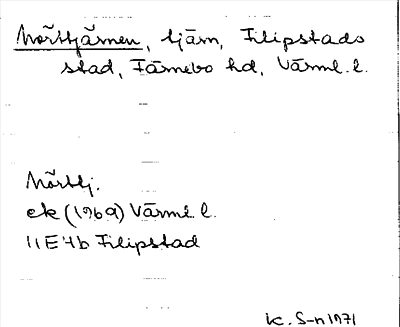 Mörttjärnen, tjärn, Filipstads
stad, Färnebo hd, Värml. l.
Mörttj.
ek (1969) Värml l.
11E4b Filipstad
K. S-n 1971